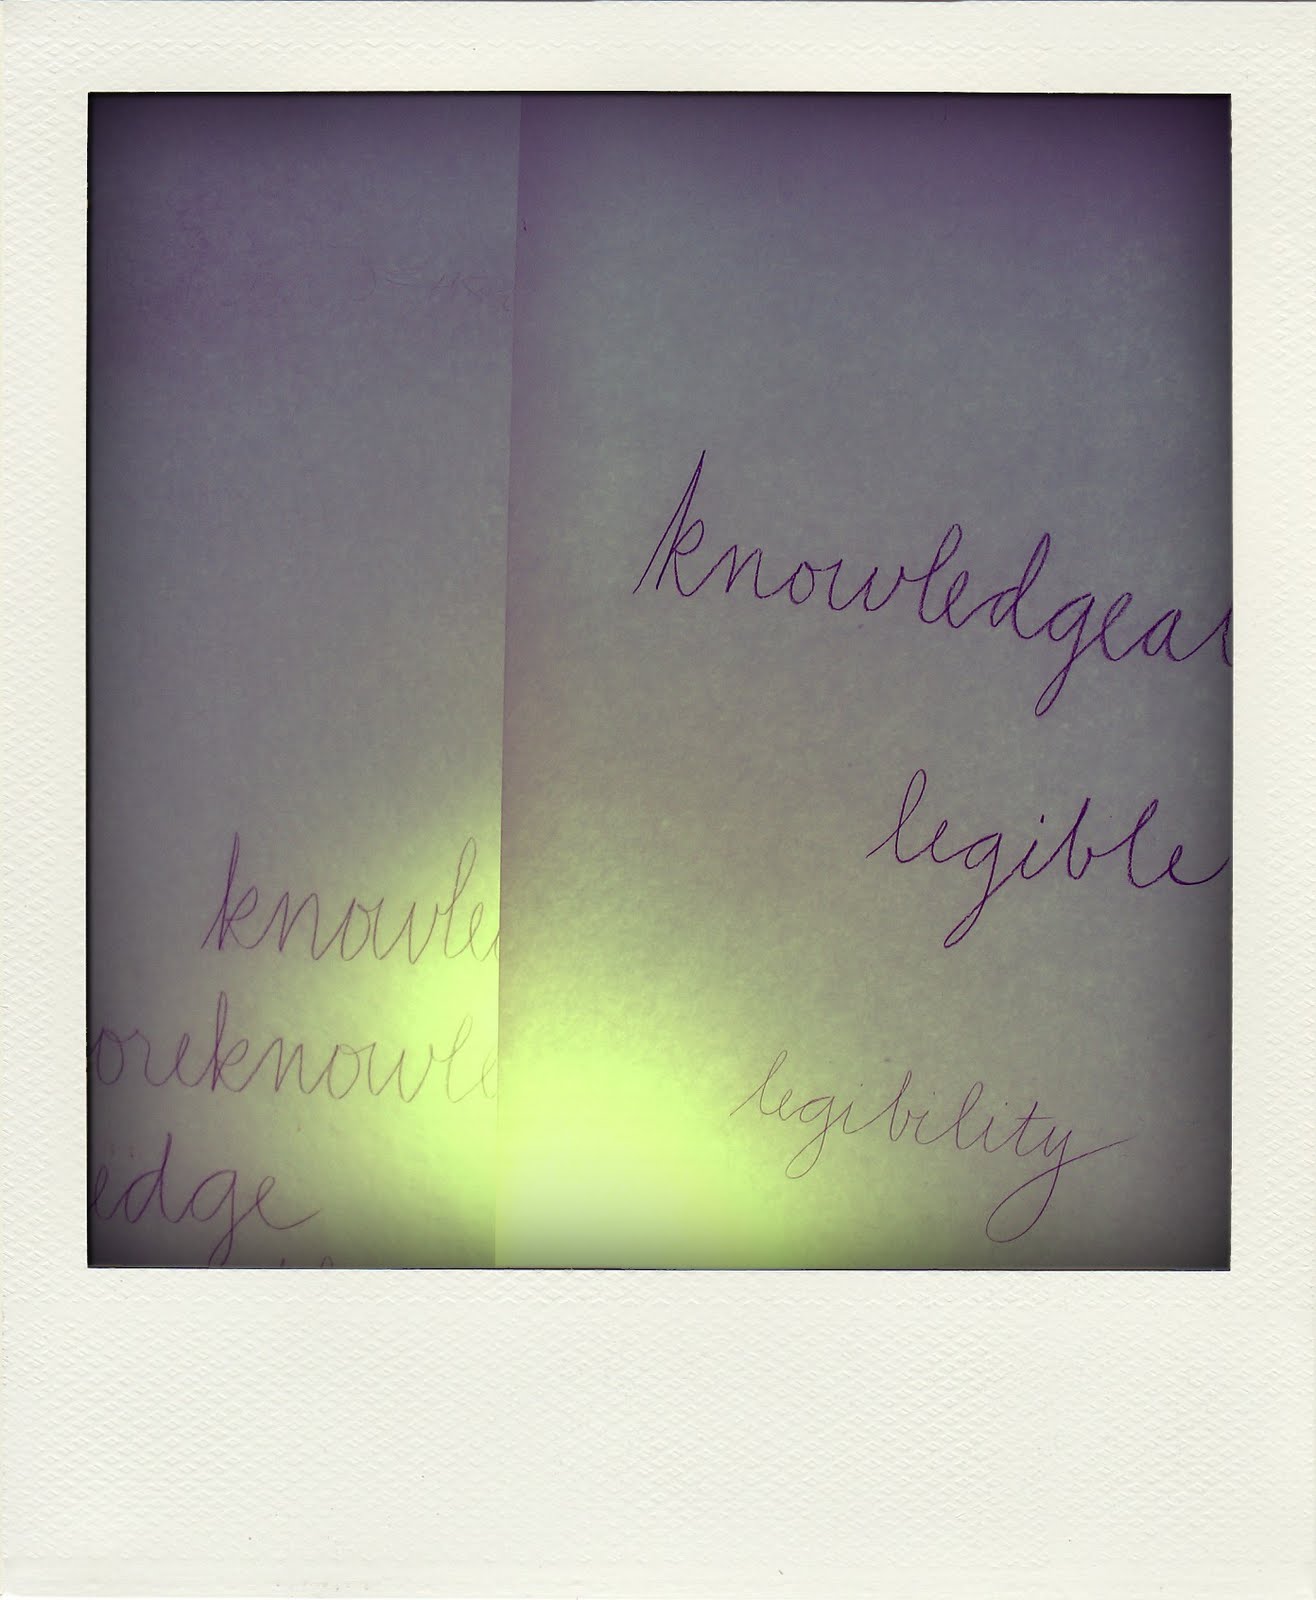 knowledgea
legible
legibility
knowle
oreknowle
edge